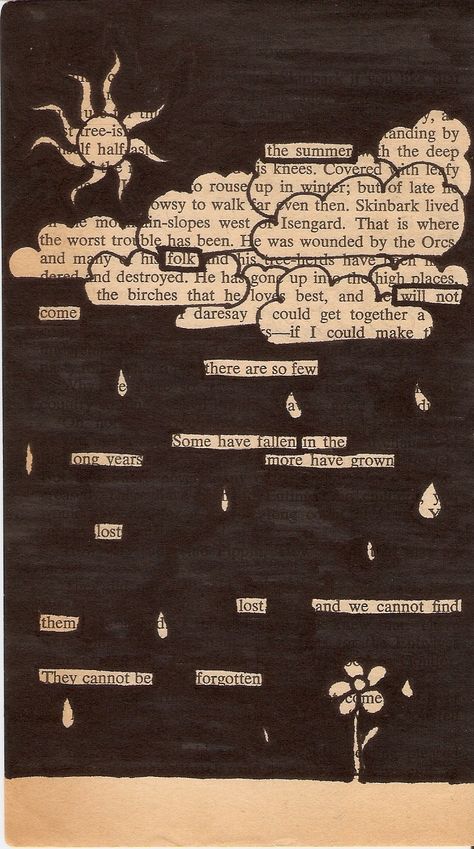 tanding by
the summer the deep
knees. Covered with leafy
o rouse up in winter; but of late he
owsy to walk far even then. Skinbark lived
the mountain-slopes west of Isengard. That is where
the worst trouble has been. He was wounded by the Orcs
and many folk and his tree-herds have been
dered and destroyed. He has gone up into the high places,
the birches that he loves best, and he will not
come daresay could get together a
s—if I could make
there are so few
Some have fallen in the
ong years more have grown
lost
lost and we cannot find
them
They cannot be forgotten
come